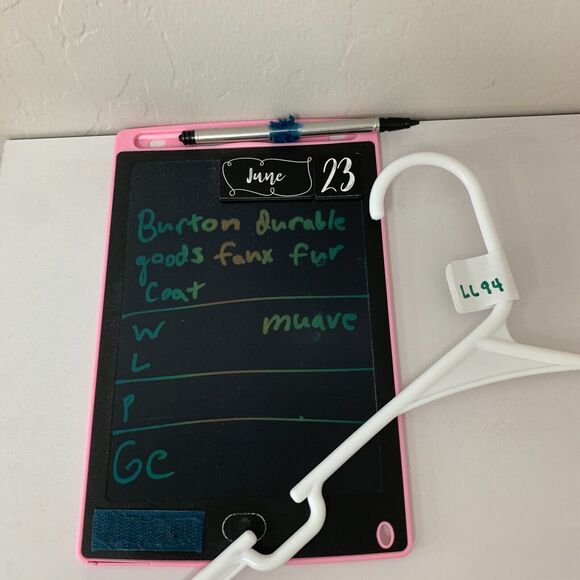 June 23
Burton durable
goods faux fur
Coat
W muave
L
P
GC
LL94